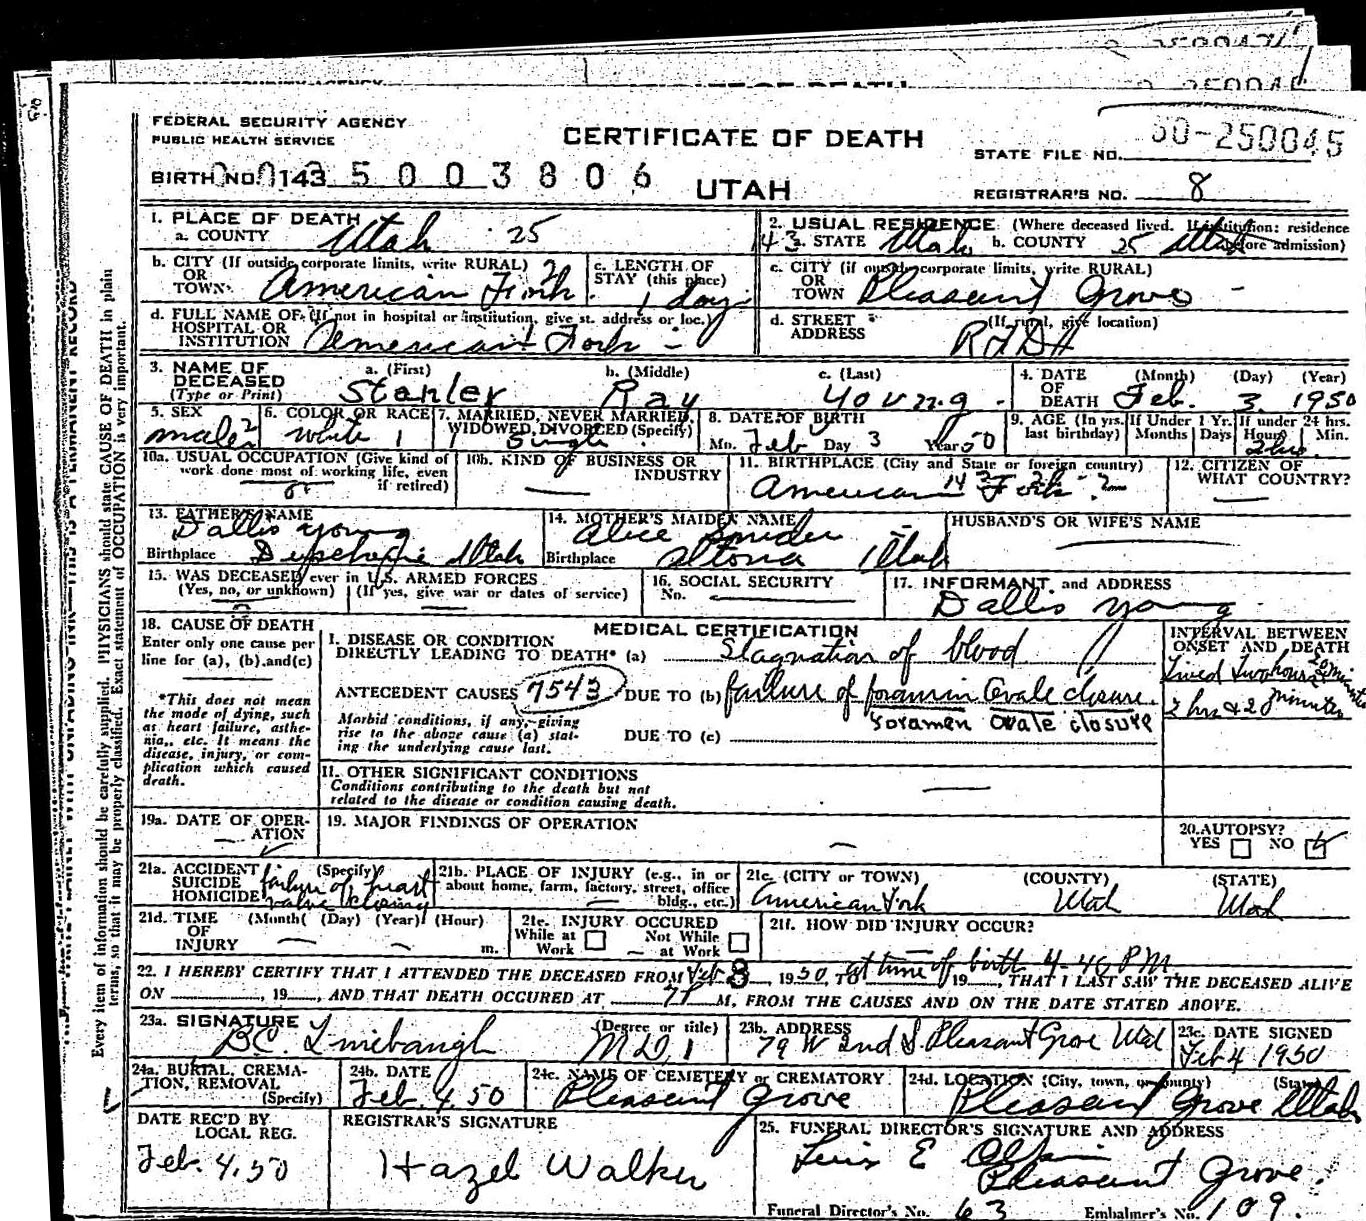 FEDERAL SECURITY AGENCY
PUBLIC HEALTH SERVICE
CERTIFICATE OF DEATH
STATE FILE NO. 50-250045
BIRTH NO. 143 5003806
UTAH
REGISTRAR'S NO. 8
1. PLACE OF DEATH
a. COUNTY Utah 25
2. USUAL RESIDENCE (Where deceased lived. If institution: residence before admission)
43 a. STATE Utah b. COUNTY 25 Utah
b. CITY (If outside corporate limits, write RURAL) OR TOWN American Fork
c. LENGTH OF STAY (this place) 1 day
c. CITY (if outside corporate limits, write RURAL) OR TOWN Pleasant Grove -
d. FULL NAME OF (If not in hospital or institution, give st. address or loc.) HOSPITAL OR INSTITUTION American Fork -
d. STREET ADDRESS (If rural, give location)
3. NAME OF DECEASED (Type or Print)
a. (First) Stanley b. (Middle) Ray c. (Last) Young
4. DATE OF DEATH (Month) (Day) (Year) Feb. 3 1950
5. SEX male 2
6. COLOR OR RACE white 1
7. MARRIED, NEVER MARRIED, WIDOWED, DIVORCED (Specify) 1 Single
8. DATE OF BIRTH Mo. Feb Day 3 Year 50
9. AGE (In yrs. last birthday) If Under 1 Yr. Months Days If under 24 hrs. Hours Min. 2 hrs.
10a. USUAL OCCUPATION (Give kind of work done most of working life, even if retired)
10b. KIND OF BUSINESS OR INDUSTRY
11. BIRTHPLACE (City and State or foreign country) American Fork
12. CITIZEN OF WHAT COUNTRY?
13. FATHER'S NAME Dallis Young
Birthplace Utah
14. MOTHER'S MAIDEN NAME Alice Snider
Birthplace Altona Utah
HUSBAND'S OR WIFE'S NAME
15. WAS DECEASED ever in U.S. ARMED FORCES
(Yes, no, or unknown) (If yes, give war or dates of service)
16. SOCIAL SECURITY No.
17. INFORMANT and ADDRESS
Dallis Young
18. CAUSE OF DEATH
Enter only one cause per line for (a), (b) and (c)
*This does not mean the mode of dying, such as heart failure, asthenia, etc. It means the disease, injury, or complication which caused death.
MEDICAL CERTIFICATION
I. DISEASE OR CONDITION DIRECTLY LEADING TO DEATH* (a) Stagnation of blood
ANTECEDENT CAUSES 7543 DUE TO (b) failure of foramin Ovale closure.
foramen ovale closure
Morbid conditions, if any, giving rise to the above cause (a) stating the underlying cause last.
DUE TO (c)
INTERVAL BETWEEN ONSET AND DEATH
Lived Two hours 20 min
2 hrs & 20 minutes
II. OTHER SIGNIFICANT CONDITIONS
Conditions contributing to the death but not related to the disease or condition causing death.
19a. DATE OF OPERATION
19. MAJOR FINDINGS OF OPERATION
20. AUTOPSY? YES NO
21a. ACCIDENT SUICIDE HOMICIDE (Specify) failure of heart valve closing
21b. PLACE OF INJURY (e.g., in or about home, farm, factory, street, office bldg., etc.)
21c. (CITY or TOWN) (COUNTY) (STATE)
American Fork Utah Utah
21d. TIME OF INJURY (Month) (Day) (Year) (Hour) m.
21e. INJURY OCCURED While at Work Not While at Work
21f. HOW DID INJURY OCCUR?
22. I HEREBY CERTIFY THAT I ATTENDED THE DECEASED FROM Feb 3, 1950, TO at time of birth 4.40 P.M. 19, THAT I LAST SAW THE DECEASED ALIVE
ON , 19 , AND THAT DEATH OCCURED AT 7P M, FROM THE CAUSES AND ON THE DATE STATED ABOVE.
23a. SIGNATURE B.C. Linebaugh (Degree or title) M.D. 1
23b. ADDRESS 79 W 2nd S. Pleasant Grove Utah
23c. DATE SIGNED Feb 4 1950
24a. BURIAL, CREMATION, REMOVAL (Specify)
24b. DATE Feb 4, 50
24c. NAME OF CEMETERY or CREMATORY Pleasant Grove
24d. LOCATION (City, town, or county) (State) Pleasant Grove Utah
DATE REC'D BY LOCAL REG. Feb. 4, 50
REGISTRAR'S SIGNATURE Hazel Walker
25. FUNERAL DIRECTOR'S SIGNATURE AND ADDRESS
Pleasant Grove.
Funeral Director's No. 63 Embalmer's No. 109.
Every item of information should be carefully supplied. PHYSICIANS should state CAUSE OF DEATH in plain
terms, so that it may be properly classified. Exact statement of OCCUPATION is very important.